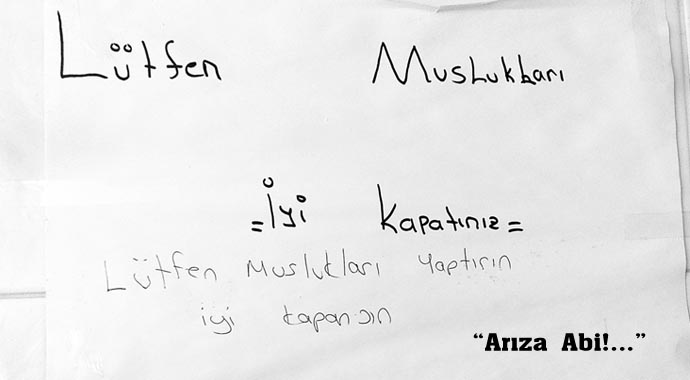 Lütfen Muslukları
=İyi Kapatınız=
Lütfen Muslukları Yaptırın
iyi kapansın
“Arıza Abi!...”